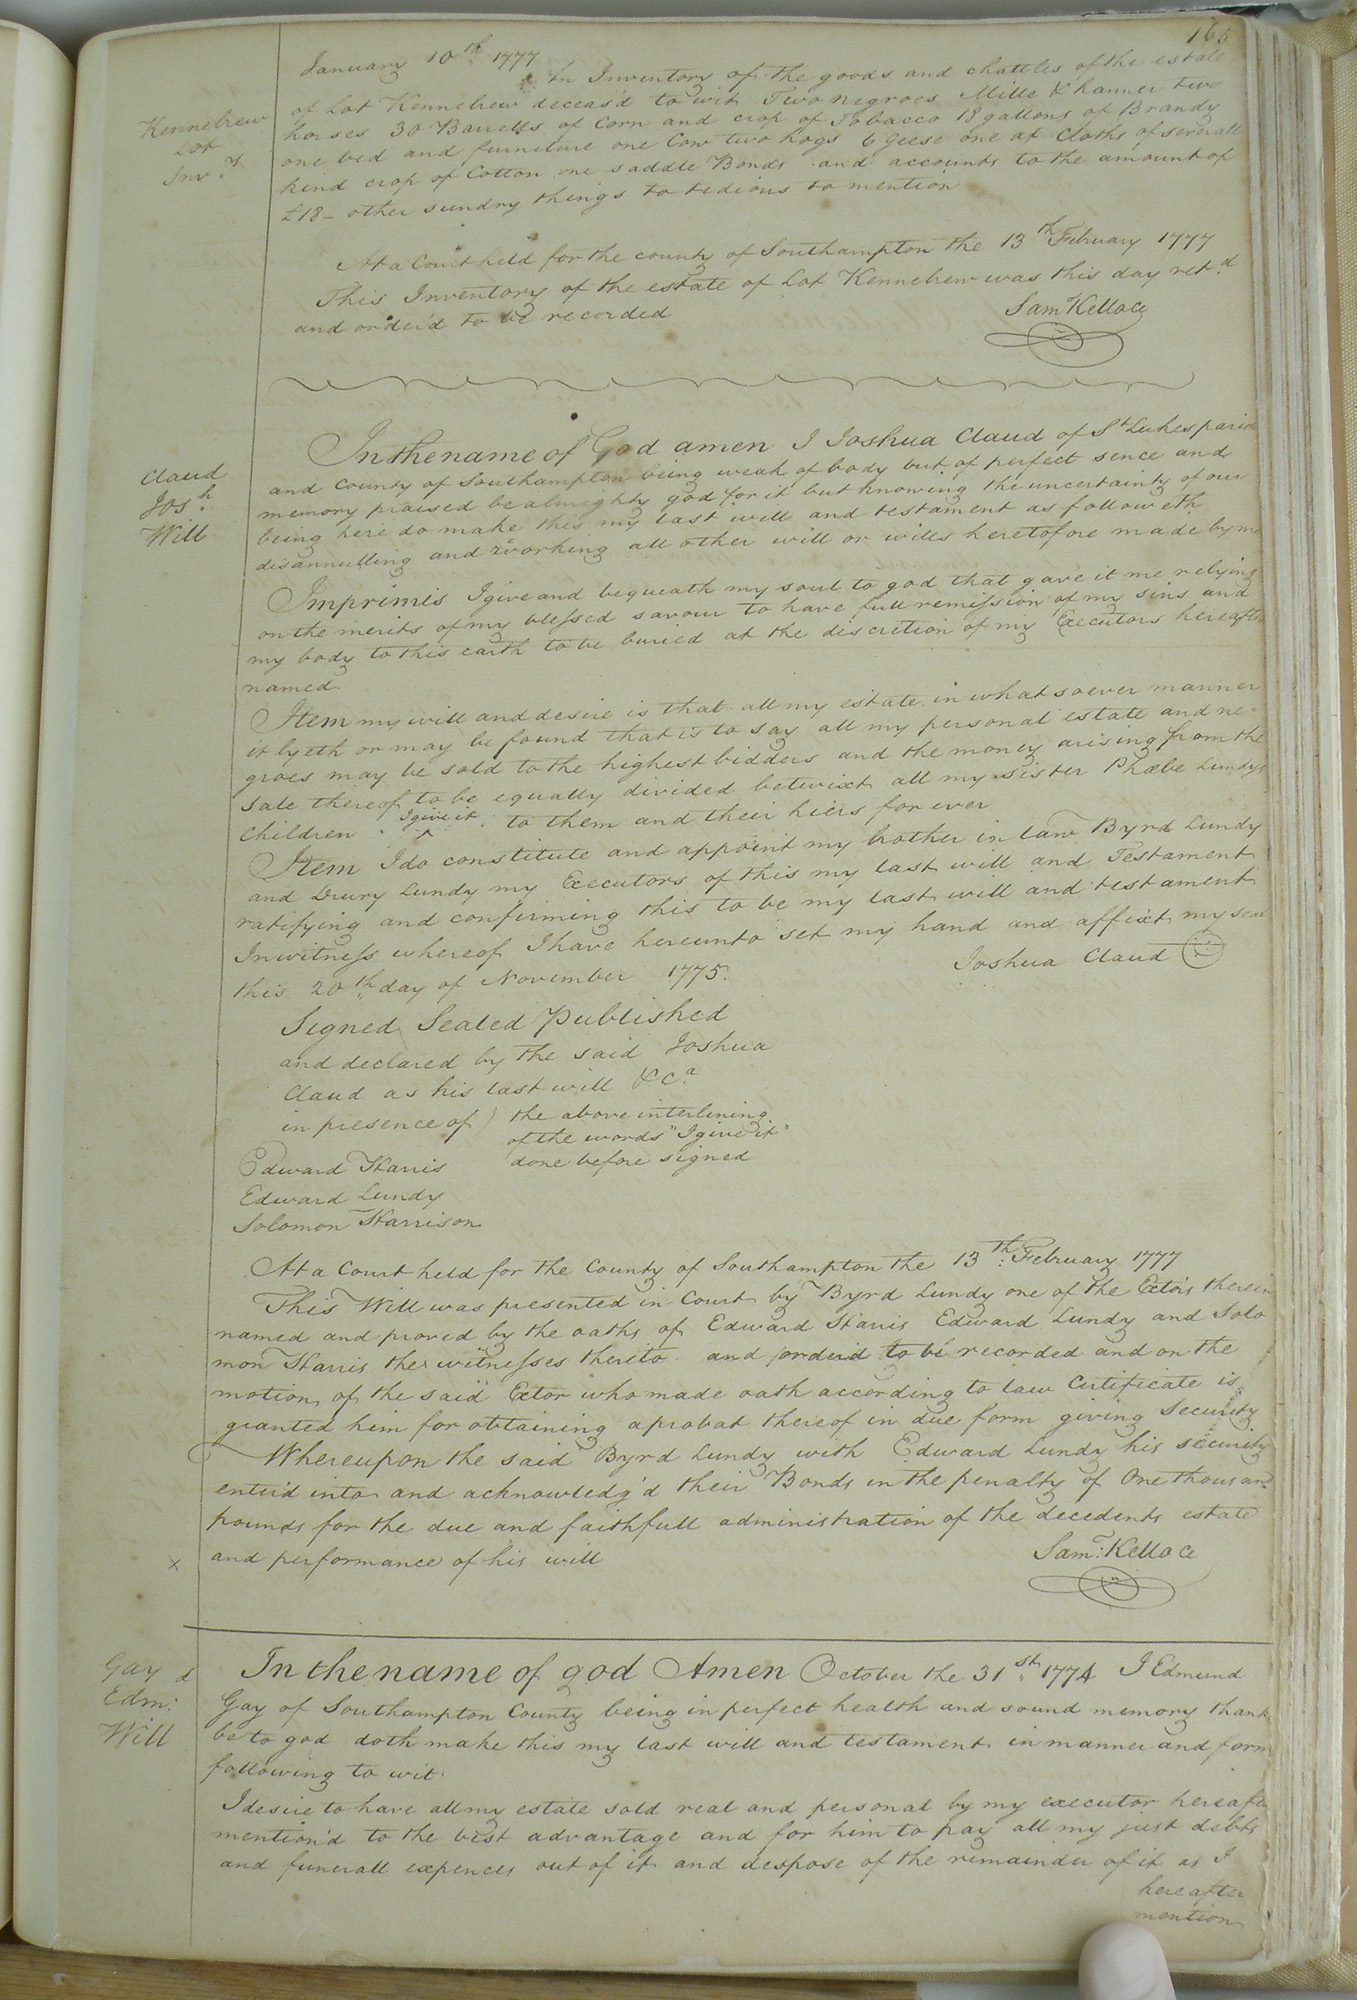 165
January 10th 1777
An Inventory of the goods and chattles of the estate
Kennebrew
Lot
Inv.y
of Lot Kennebrew deceas'd to wit Two negroes Mille & hanner two
horses 30 Barrells of Corn and crop of Tobacco 18 gallons of Brandy
one bed and furniture one Cow two hogs 6 Geese one ax Cloths of severall
kind crop of Cotton one saddle Bonds and accounts to the amount of
£18- other sundry things to tedious to mention
At a Court held for the county of Southampton the 13th February 1777
This Inventory of the estate of Lot Kennebrew was this day ret.d
and order'd to be recorded
Sam Kelloce
Claud
Jos.h
Will
In the name of God amen I Joshua Claud of St Lukes parish
and County of Southampton being weak of body but of perfect sence and
memory praised be almighty god for it but knowing the uncertainty of our
being here do make this my last will and testament as followeth
disannulling and revorking all other will or wills heretofore made by me
Imprimis I give and bequeath my soul to god that gave it me relying
on the merits of my blessed savour to have full remission of my sins and
my body to this earth to be buried at the discretion of my Executors hereafter
named
Item my will and desire is that all my estate in what soever manner
it lyeth or may be found that is to say all my personal estate and ne-
groes may be sold to the highest bidders and the money arising from the
sale thereof to be equally divided betwixt all my sister Phœbe Lundys
Children ^ I give it to them and their hiers for ever
Item I do constitute and appoint my brother in law Byrd Lundy
and Drury Lundy my Executors of this my last will and Testament
ratifying and confirming this to be my last will and testament
In witness whereof I have hereunto set my hand and affixt my seal
this 20th day of November 1775.
Joshua Claud
Signed Sealed Published
and declared by the said Joshua
Claud as his last will &c.a
in presence of ) the above interlining
of the words "I give it"
done before signed
Edward Harris
Edward Lundy
Solomon Harrison
At a Court held for the County of Southampton the 13th February 1777
This Will was presented in Court by Byrd Lundy one of the Extors therein
named and proved by the oaths of Edward Harris Edward Lundy and Solo
mon Harris the witnesses thereto and order'd to be recorded and on the
motion of the said Extor who made oath according to law Certificate is
granted him for obtaining a probat thereof in due form giving Security
Whereupon the said Byrd Lundy with Edward Lundy his security
enter'd into and acknowledg'd their Bonds in the penalty of One thousand
pounds for the due and faithfull administration of the decedents estate
x and performance of his will
Sam: Kelloce
Gay
Edm:d
Will
In the name of god Amen October the 31st 1774 I Edmund
Gay of Southampton County being in perfect health and sound memory thanks
be to god doth make this my last will and testament in manner and form
following to wit.
I desire to have all my estate sold real and personal by my executor hereafter
mention'd to the best advantage and for him to pay all my just debts
and funerall expences out of it and despose of the remainder of it as I
hereafter
mention